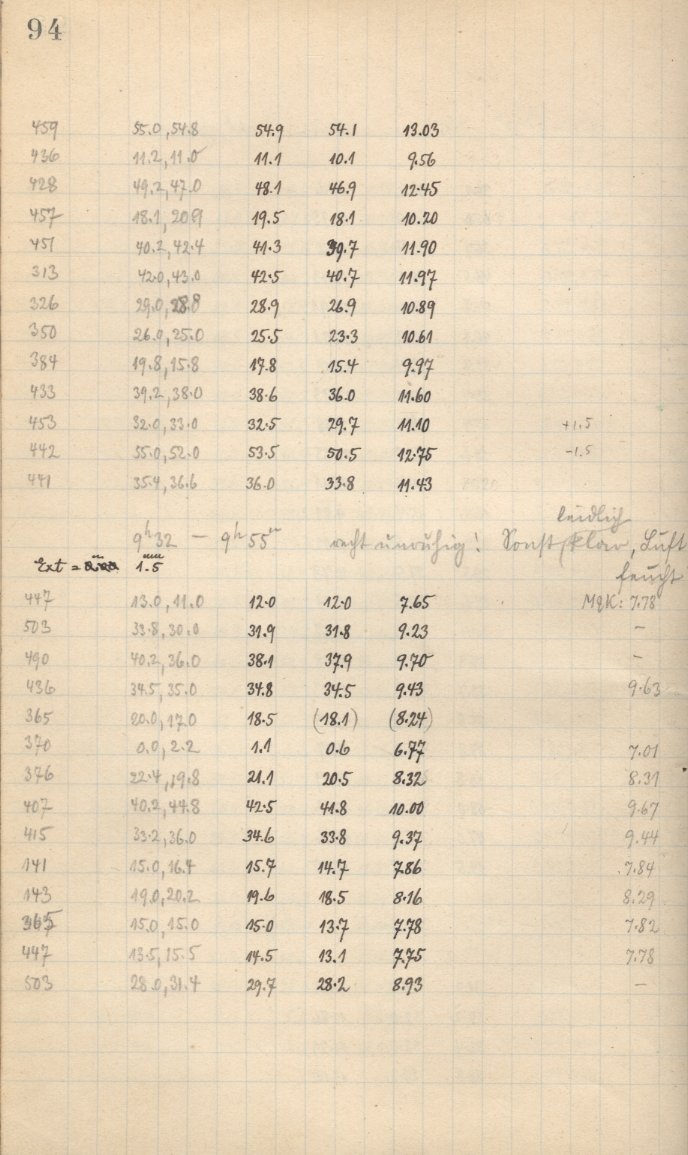 94
459 55.0, 54.8 54.9 54.1 13.03
436 11.2, 11.0 11.1 10.1 9.56
428 49.2, 47.0 48.1 46.9 12.45
457 18.1, 20.9 19.5 18.1 10.20
451 40.2, 42.4 41.3 39.7 11.90
313 42.0, 43.0 42.5 40.7 11.97
326 29.0, 28.8 28.9 26.9 10.89
350 26.0, 25.0 25.5 23.3 10.61
384 19.8, 15.8 17.8 15.4 9.97
433 39.2, 38.0 38.6 36.0 11.60
453 32.0, 33.0 32.5 29.7 11.10 +1.5
442 55.0, 52.0 53.5 50.5 12.75 -1.5
441 35.4, 36.6 36.0 33.8 11.43
leidlich
9h 32 — 9h 55m recht unruhig! Sonst klar, Luft
feucht
Ext = 1.5
447 13.0, 11.0 12.0 12.0 7.65 M&K: 7.78
503 33.8, 30.0 31.9 31.8 9.23 —
490 40.2, 36.0 38.1 37.9 9.70 —
436 34.5, 35.0 34.8 34.5 9.43 9.63
365 20.0, 17.0 18.5 (18.1) (8.24)
370 0.0, 2.2 1.1 0.6 6.77 7.01
376 22.4, 19.8 21.1 20.5 8.32 8.31
407 40.2, 44.8 42.5 41.8 10.00 9.67
415 33.2, 36.0 34.6 33.8 9.37 9.44
141 15.0, 16.4 15.7 14.7 7.86 7.84
143 19.0, 20.2 19.6 18.5 8.16 8.29
365 15.0, 15.0 15.0 13.7 7.78 7.82
447 13.5, 15.5 14.5 13.1 7.75 7.78
503 28.0, 31.4 29.7 28.2 8.93 —